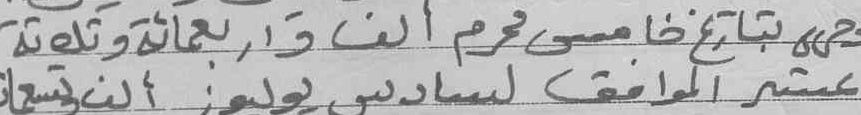 وحرر بتاريخ خامس محرم ألف و اربعمائة وثلاثة
عشر الموافق لسادس يوليوز ألف وتسعمائة